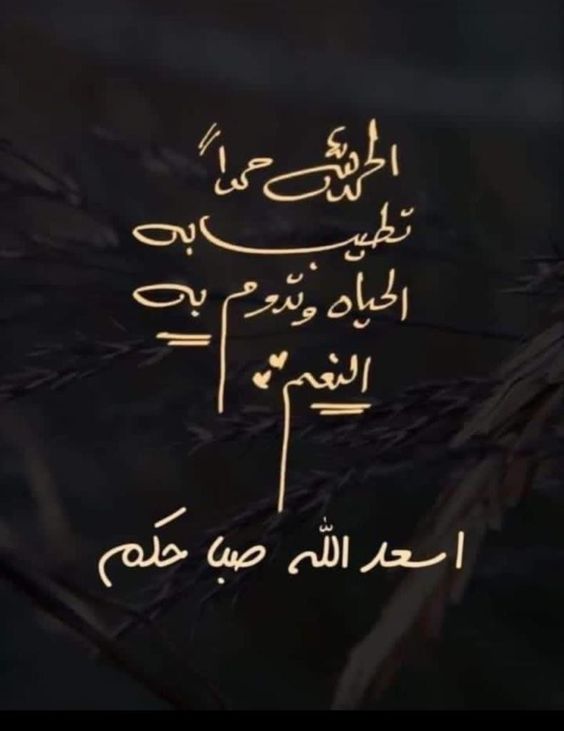 الحمدلله حمداً
تطيب به
الحياه وتدوم به
النعم
اسعد الله صباحكم